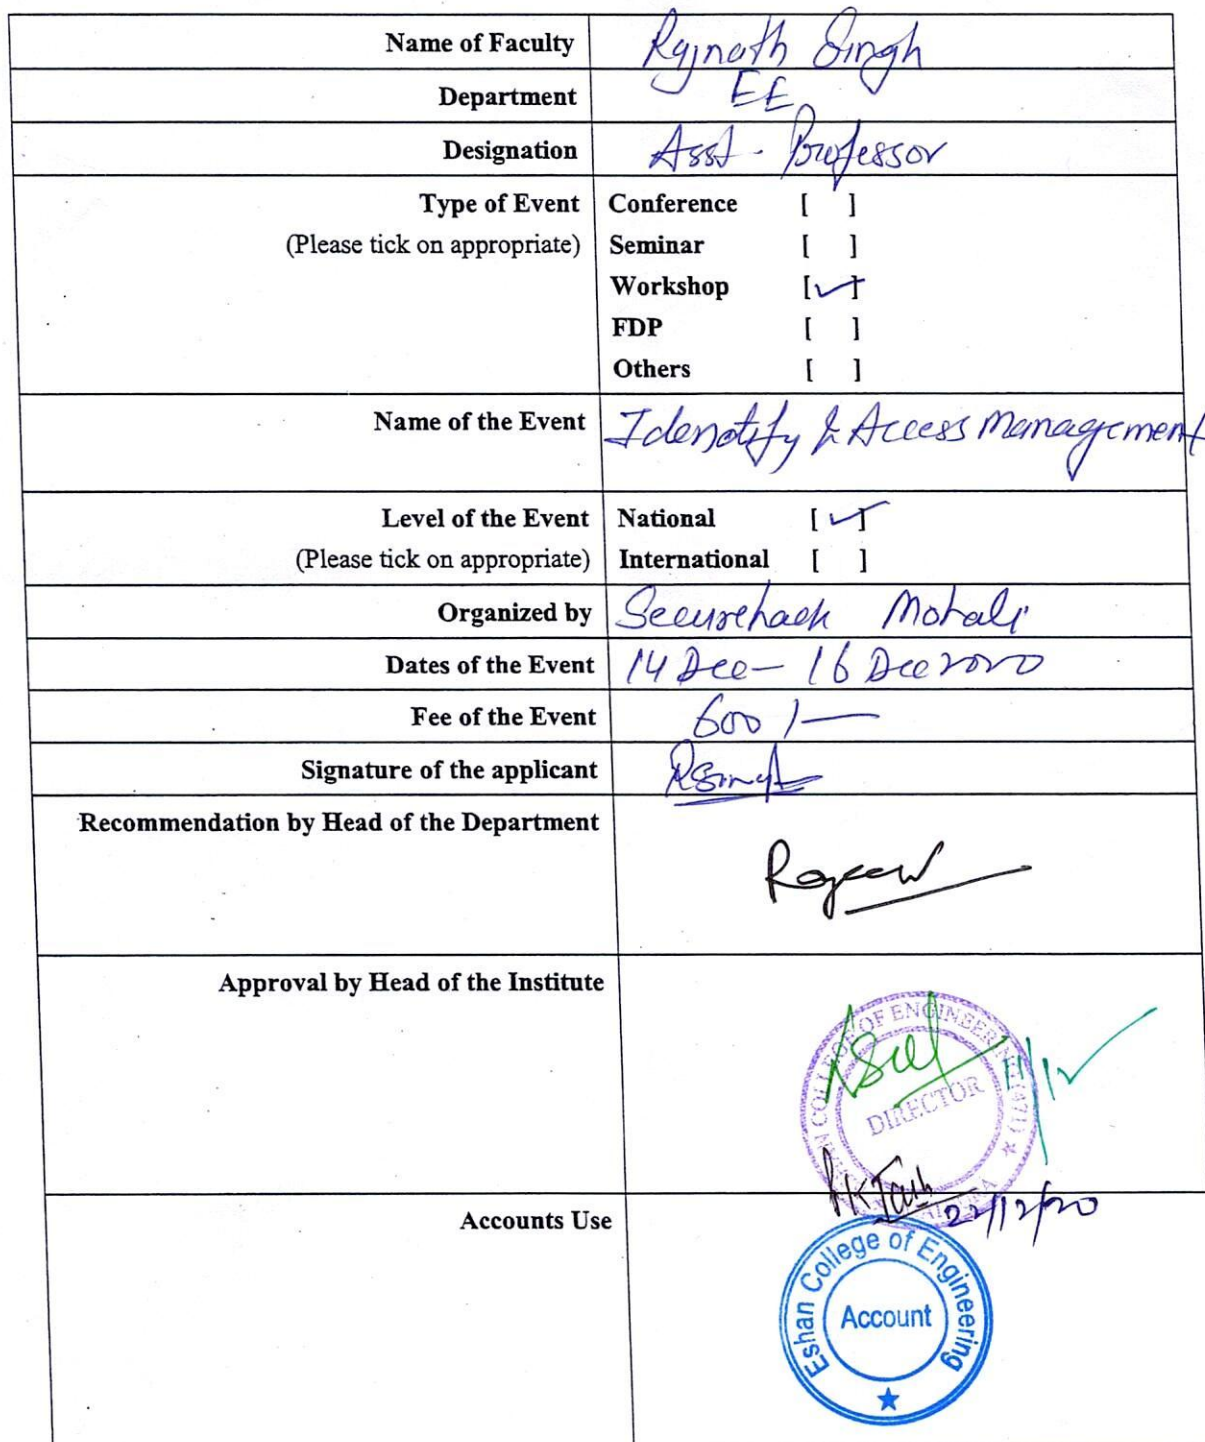 Name of Faculty Rajnath Singh
Department EE
Designation Asst. Professor
Type of Event Conference [ ]
(Please tick on appropriate) Seminar [ ]
Workshop [✓]
FDP [ ]
Others [ ]
Name of the Event Idenotify & Access Management
Level of the Event National [✓]
(Please tick on appropriate) International [ ]
Organized by Securehack Mohali
Dates of the Event 14 Dec - 16 Dec 2020
Fee of the Event 600/-
Signature of the applicant RSingh
Recommendation by Head of the Department
Rajeev
Approval by Head of the Institute
COLLEGE OF ENGINEERING (471)
DIRECTOR
22/12/20
Accounts Use
Eshan College of Engineering
Account